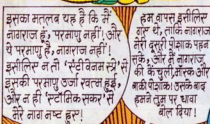 इसका मतलब यह है कि मैं
नागराज हूं, परमाणु नहीं! और
ये परमाणु है, नागराज नहीं!
इसीलिए न तो 'स्टीविनम स्प्रे' से
इसकी परमाणु ऊर्जा खत्म हुई,
और न ही 'स्टॉमिक सकर' से
मेरे नाग नष्ट हुए!
हम वापस इसीलिए
गए थे, ताकि नागराज
मेरी दूसरी पोशाक पहन
सके, और मैं नागराज
की केंचुली, मास्क और
पोशाक! उसके बाद
हमने तुम पर धावा
बोल दिया!